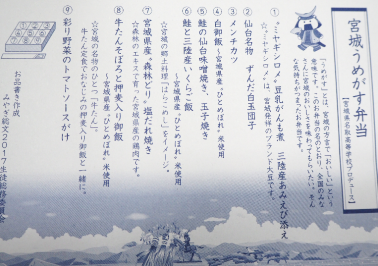 宮城うめがす弁当
【宮城県名取高等学校プロデュース】
「うめがす」とは、宮城の方言で「おいしい」という
意味です。このお弁当の名のとおり、全国のみな
さんに宮城のおいしさを味わってもらいたい、そん
な気持ちがつまったお弁当です。
① “ミヤギシロメ”豆乳がんも煮 三陸産あみえび添え
☆“ミヤギシロメ”は、宮城発祥のブランド大豆です。
② 仙台名物 ずんだ白玉団子
③ メンチカツ
④ 白御飯 ～宮城県産“ひとめぼれ”米使用
⑤ 鮭の仙台味噌焼き、玉子焼き
⑥ 鮭と三陸産いくらご飯
～宮城県産“ひとめぼれ”米使用
☆宮城の郷土料理“はらこめし”をイメージ。
⑦ 宮城県産“森林どり”塩だれ焼き
☆森林のエキスで育てた宮城県産の鶏肉です。
⑧ 牛たんそぼろと押麦入り御飯
～宮城県産“ひとめぼれ”米使用
☆宮城の名物のひとつ“牛たん”。
牛たん定食でおなじみの押麦入り御飯と一緒に。
⑨ 彩り野菜のトマトソースがけ
お品書き作成
みやぎ総文2017生徒総務委員会